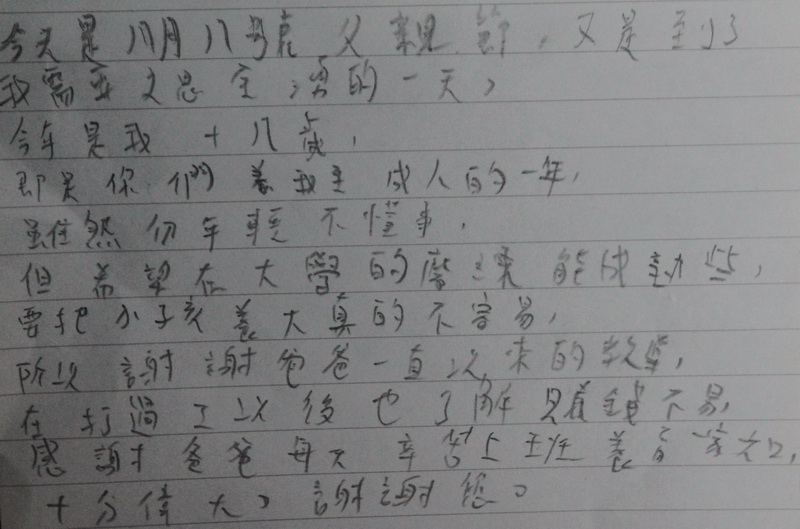 今天是八月八號是父親節,又是至少了
我需要文思全湧的一天,
今年是我十八歲,
即是你們養我至成人的一年,
雖然仍年輕不懂事,
但希望在大學的磨練能成熟些,
要把小孩養大真的不容易,
所以謝謝爸爸一直以來的教導,
在打過工以後也了解賺錢不易,
感謝爸爸每天辛苦上班養育家人,
十分偉大,謝謝您。